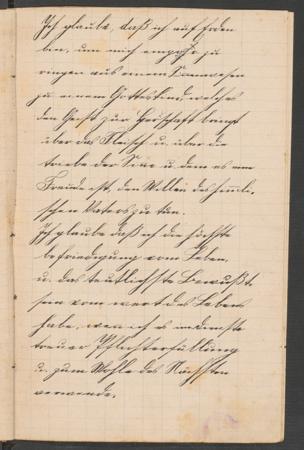 Ich glaube, daß ich auf Erden
bin, um mich empor zu
ringen aus einem Sinnwesen
zu einem Gotteskind, welches
den Geist zur Herrschaft bringt
über das Fleisch u. über die
Triebe der Sinne u. dem es eine
Freude ist, den Willen des himmli-
schen Vaters zu tun.
Ich glaube daß ich die höchste
Befriedigung vom Leben,
u. das deutlichste Bewußt-
sein vom Wert des Lebens
habe, wenn ich es in
treuer Pflichterfüllung
u. zum Wohle des Nächsten
verwende.